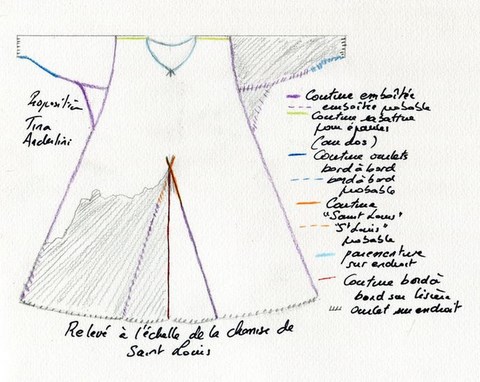 Proposition
Tina
Anderlini
Couture emboîtée
emboîtée probable
Couture rabattue
pour épaules
(au dos)
Couture ourlets
bord à bord
bord à bord
probable
Couture
"Saint Louis"
"St Louis"
probable
parementure
sur endroit
Couture bord à
bord sur lisière
ourlet sur endroit
Relevé à l'échelle de la chemise de
Saint Louis